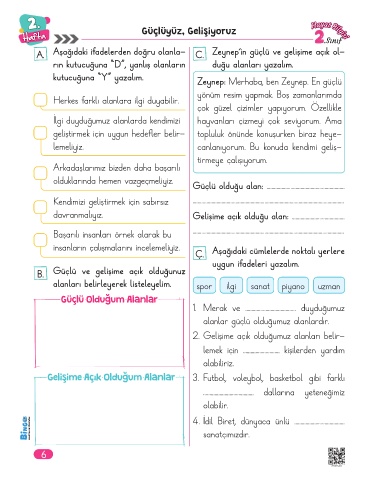 2.
Hafta
Güçlüyüz, Gelişiyoruz
Hayat Bilgisi
2. Sınıf
A. Aşağıdaki ifadelerden doğru olanla-
rın kutucuğuna "D", yanlış olanların
kutucuğuna "Y" yazalım.
Herkes farklı alanlara ilgi duyabilir.
İlgi duyduğumuz alanlarda kendimizi
geliştirmek için uygun hedefler belir-
lemeliyiz.
Arkadaşlarımız bizden daha başarılı
olduklarında hemen vazgeçmeliyiz.
Kendimizi geliştirmek için sabırsız
davranmalıyız.
Başarılı insanları örnek alarak bu
insanların çalışmalarını incelemeliyiz.
B. Güçlü ve gelişime açık olduğunuz
alanları belirleyerek listeleyelim.
Güçlü Olduğum Alanlar
Gelişime Açık Olduğum Alanlar
C. Zeynep'in güçlü ve gelişime açık ol-
duğu alanları yazalım.
Zeynep: Merhaba, ben Zeynep. En güçlü
yönüm resim yapmak. Boş zamanlarımda
çok güzel çizimler yapıyorum. Özellikle
hayvanları çizmeyi çok seviyorum. Ama
topluluk önünde konuşurken biraz heye-
canlanıyorum. Bu konuda kendimi geliş-
tirmeye çalışıyorum.
Güçlü olduğu alan: ..............................
............................................................
Gelişime açık olduğu alan: ....................
............................................................
Ç. Aşağıdaki cümlelerde noktalı yerlere
uygun ifadeleri yazalım.
spor ilgi sanat piyano uzman
1. Merak ve .................... duyduğumuz
alanlar güçlü olduğumuz alanlardır.
2. Gelişime açık olduğumuz alanları belir-
lemek için ............... kişilerden yardım
alabiliriz.
3. Futbol, voleybol, basketbol gibi farklı
.................... dallarına yeteneğimiz
olabilir.
4. İdil Biret, dünyaca ünlü ....................
sanatçımızdır.
BİNGO
6